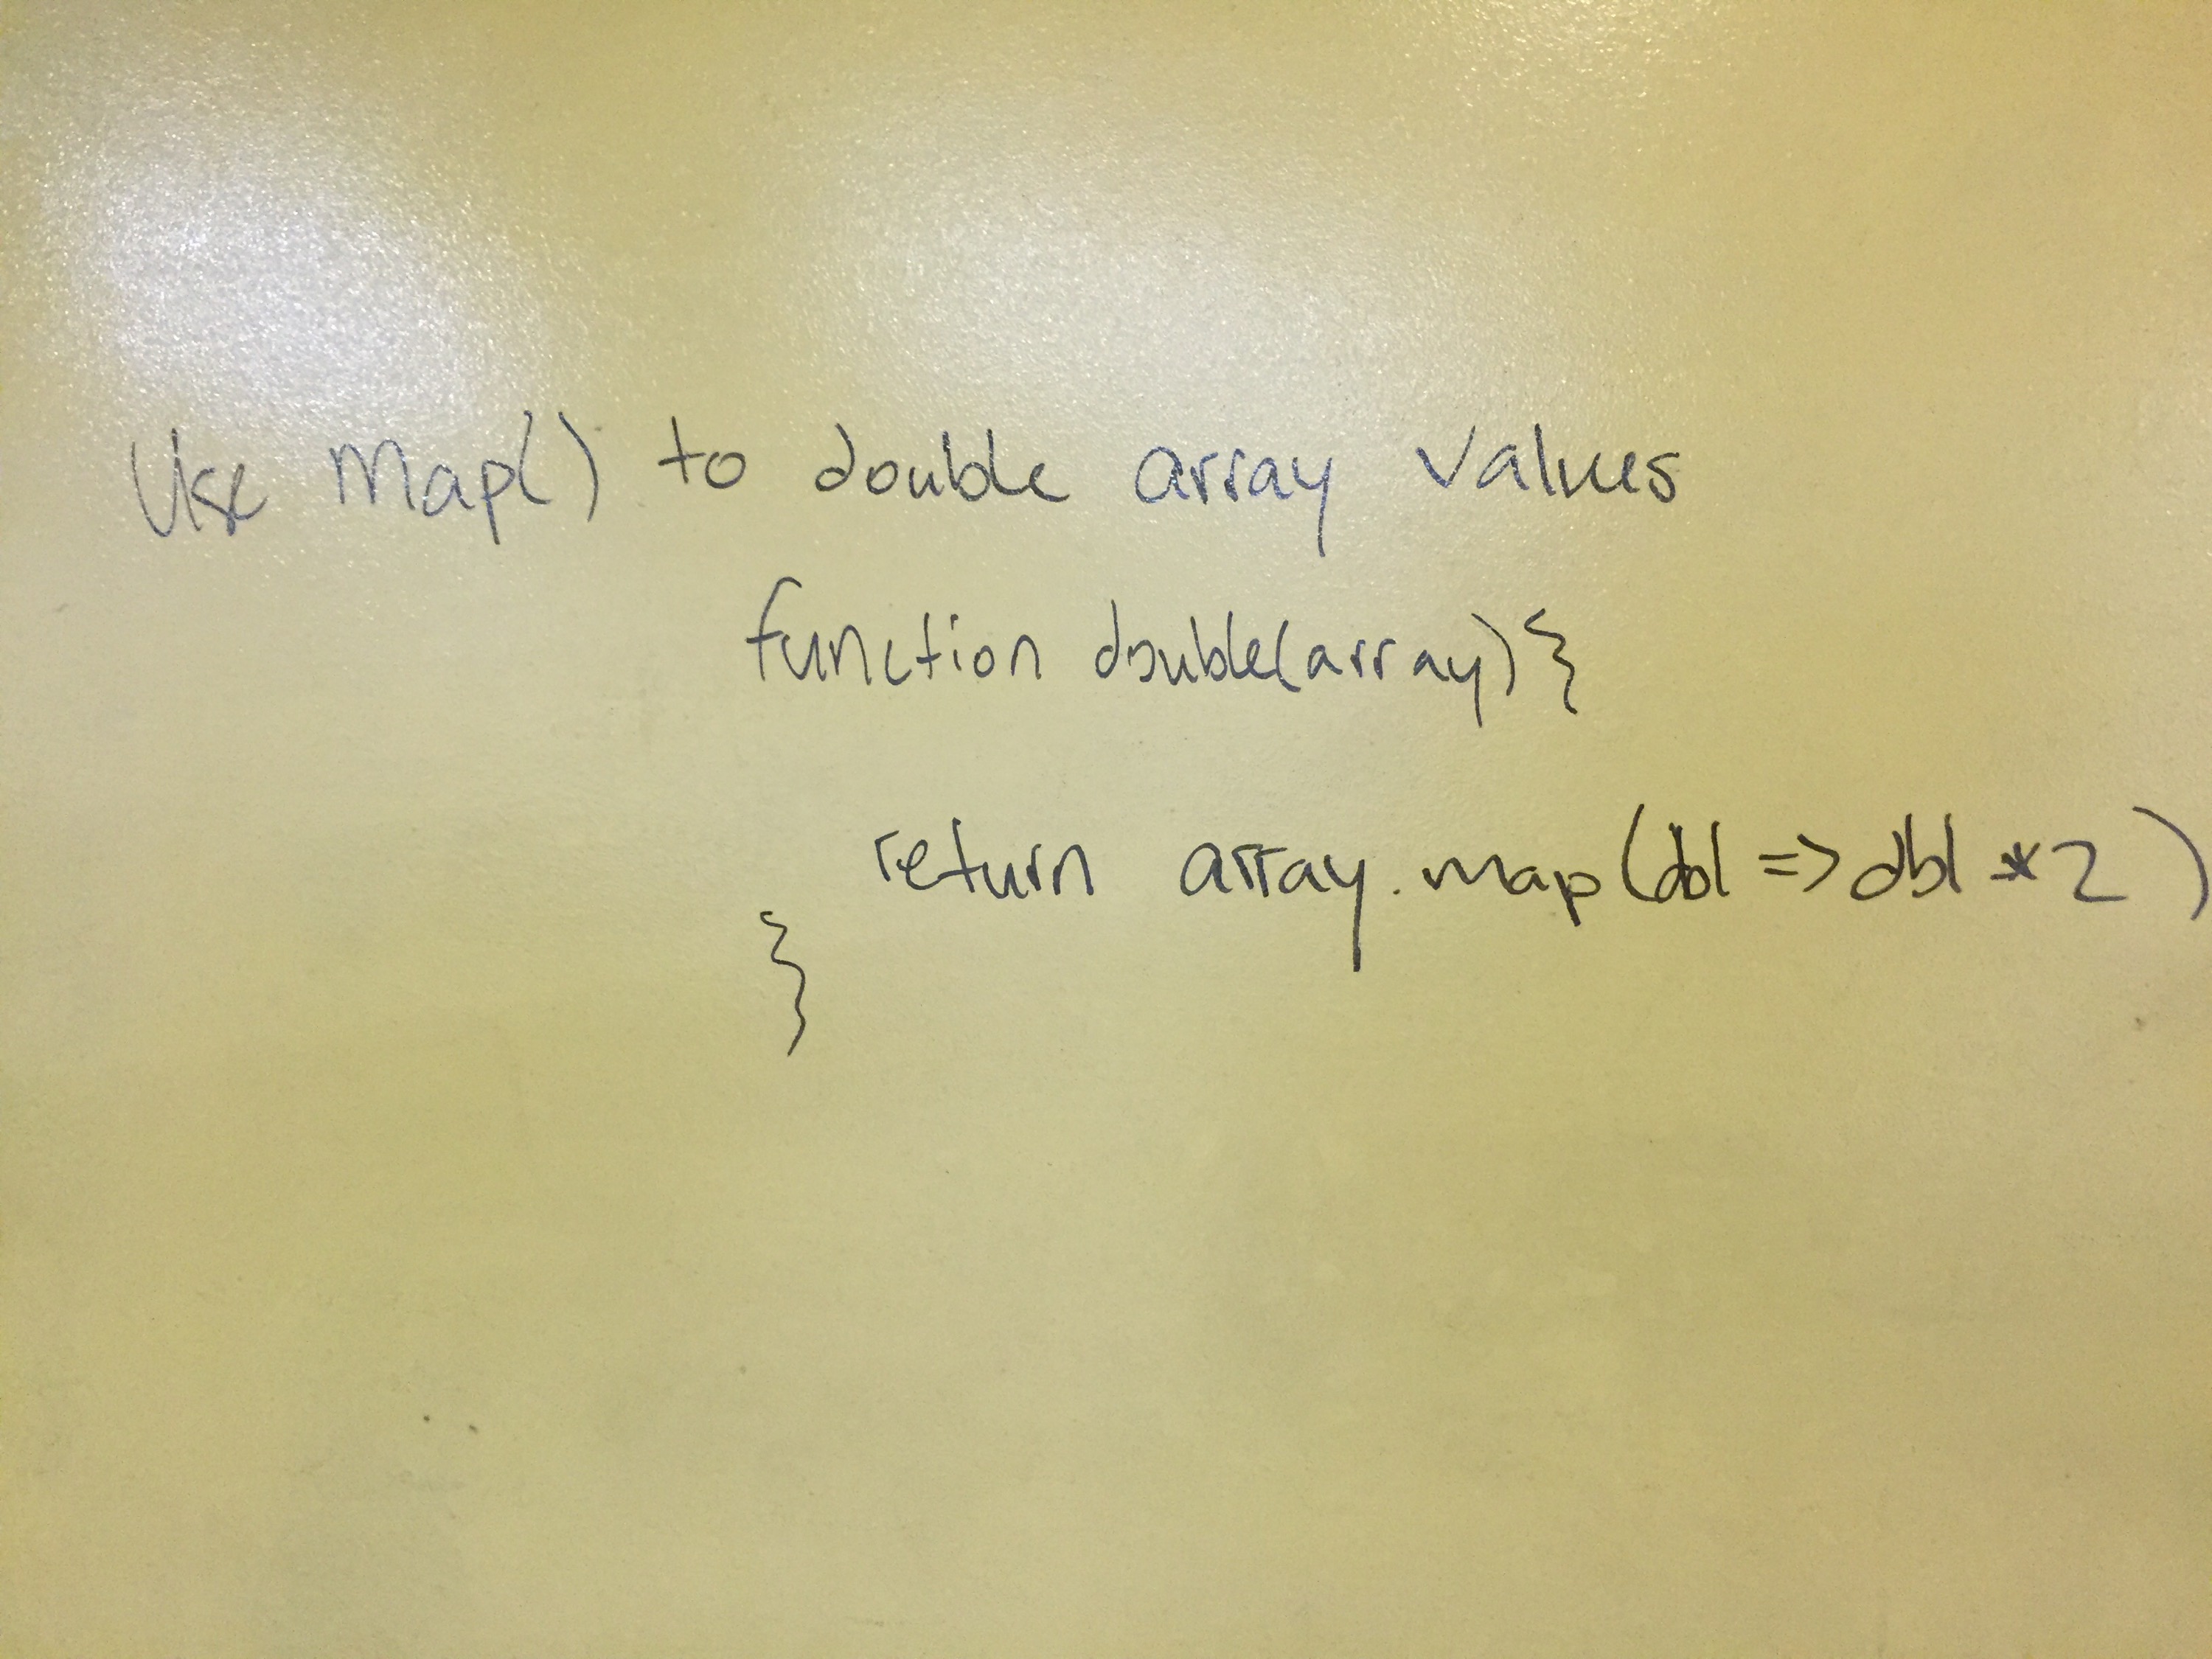 Use Map() to double array values
function double(array){
return array.map(dbl => dbl * 2)
}